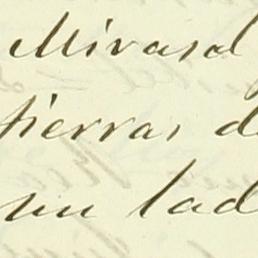 Mirasol
tierras d
un lad